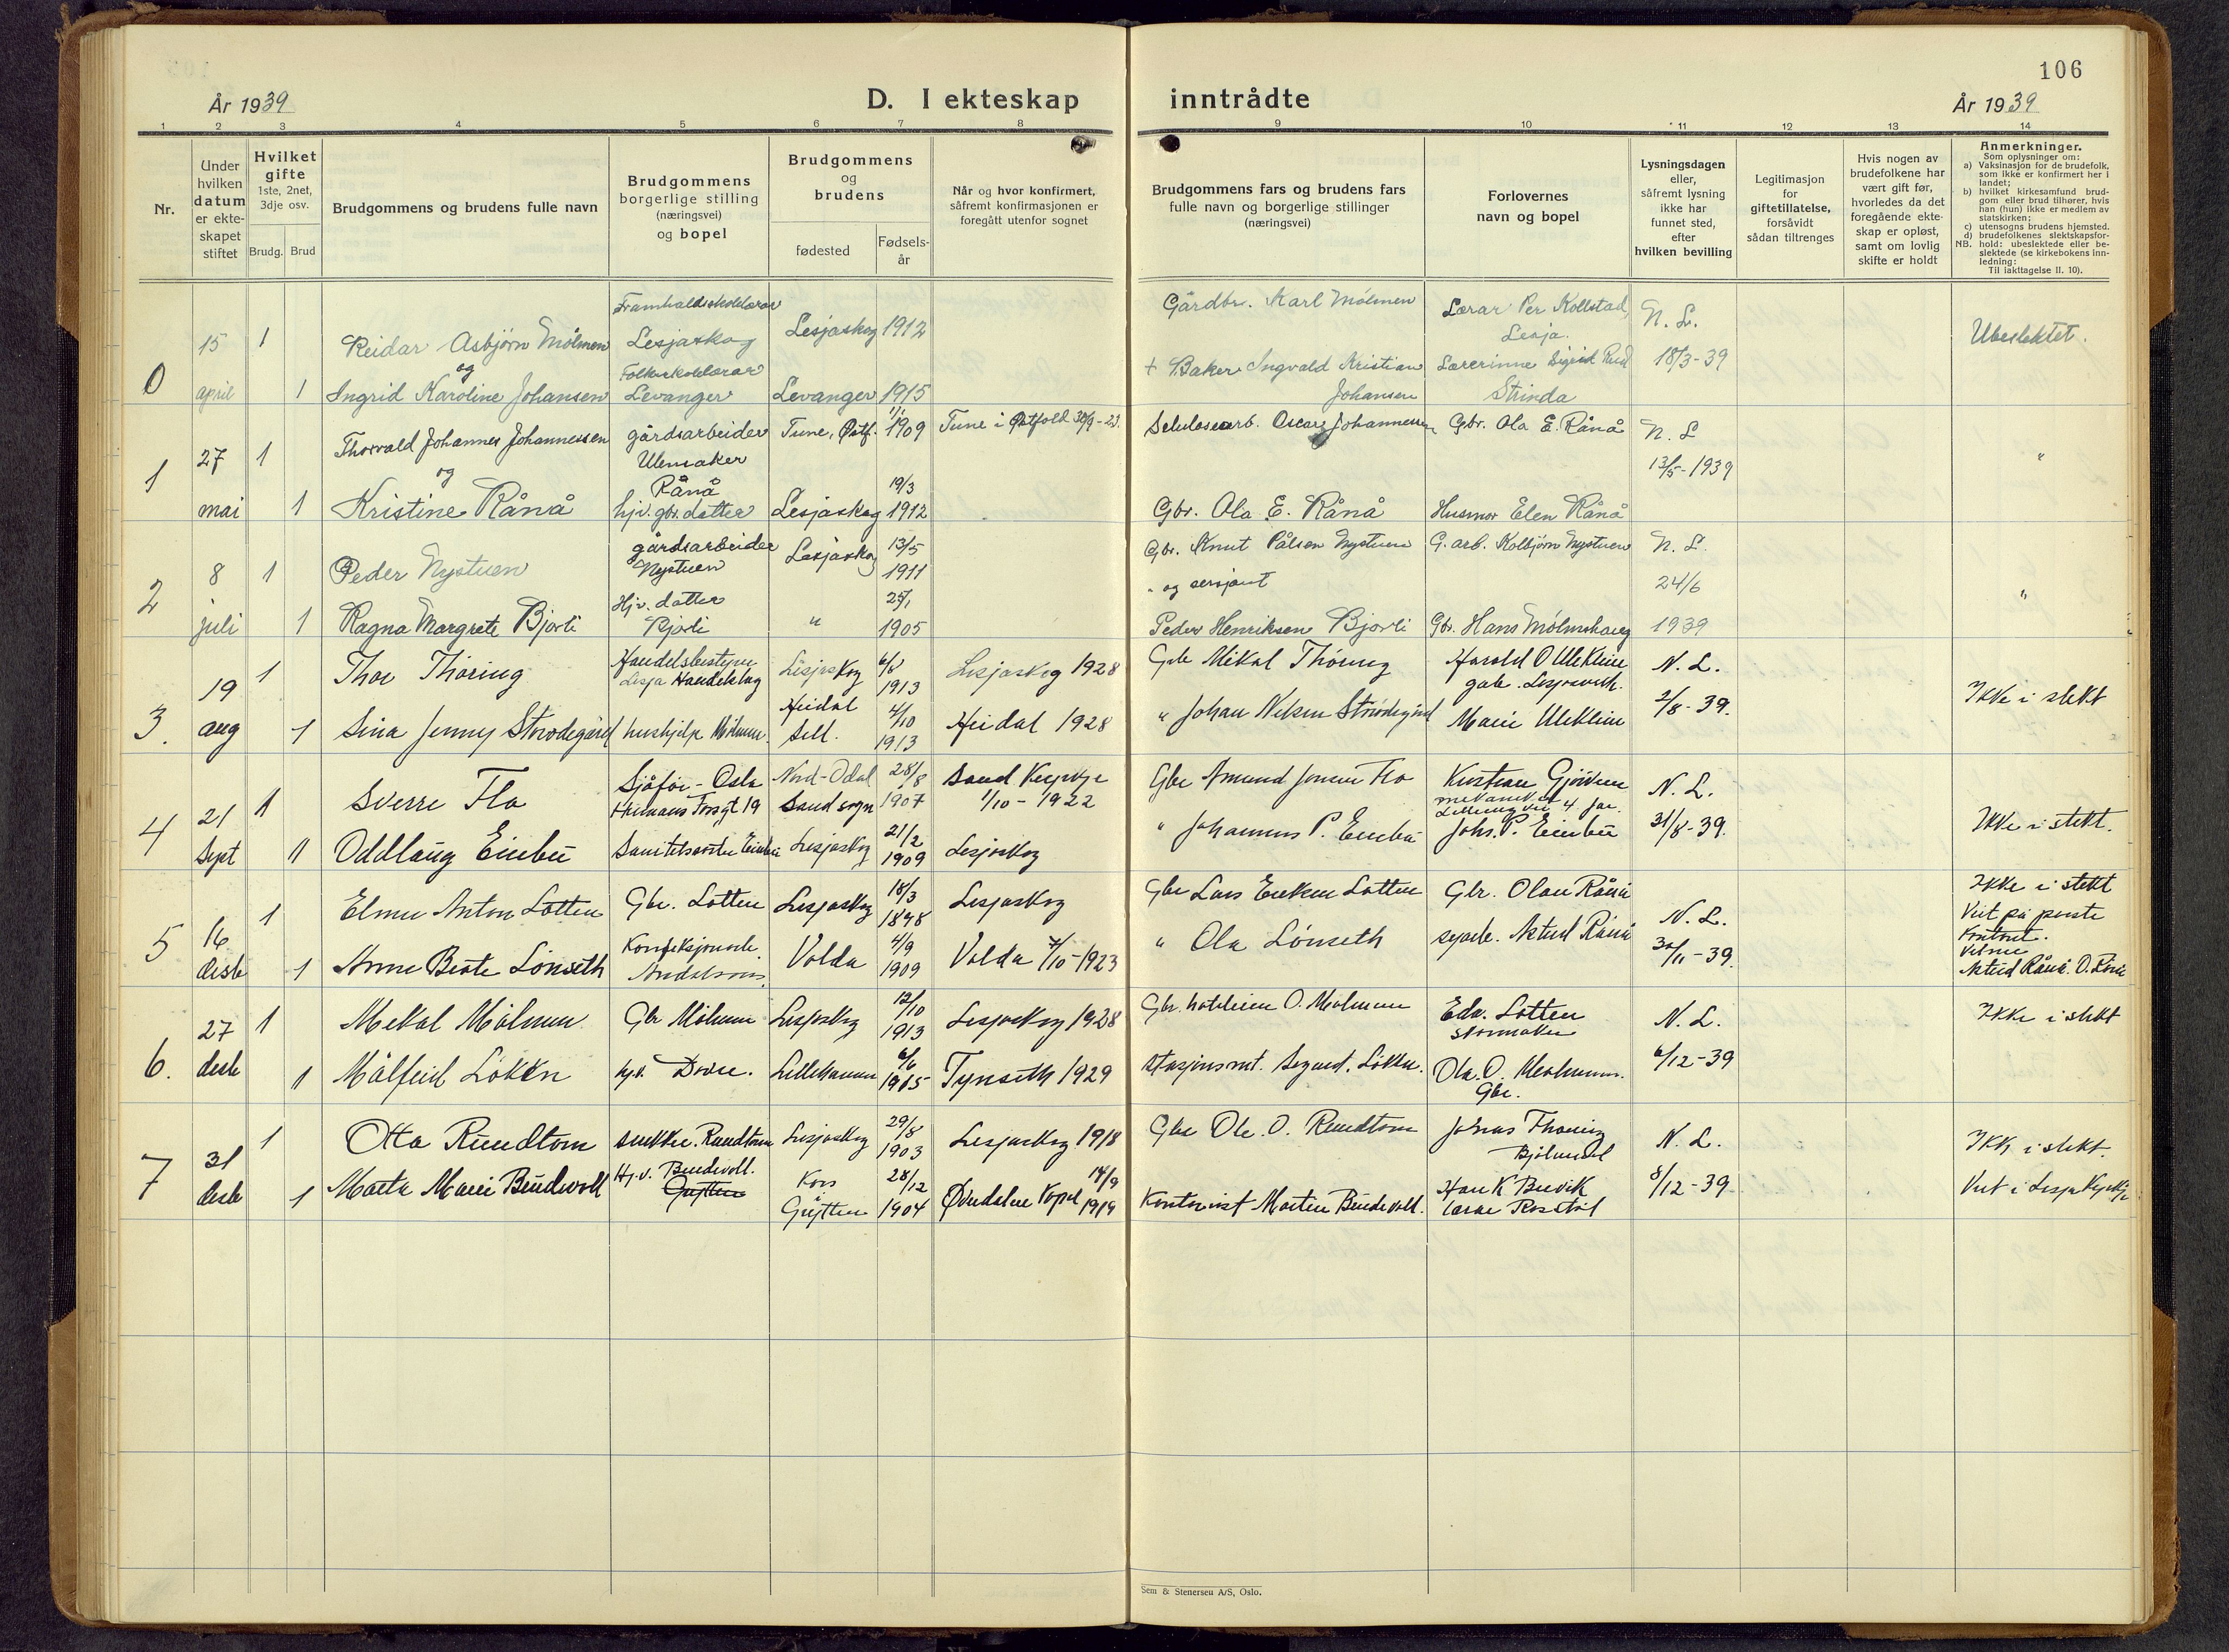 106
År 1939
D. I ekteskap inntrådte
År 1939
1 2 3 4 5 6 7 8 9 10 11 12 13 14
Nr.
Under
hvilken
datum
er ekte-
skapet
stiftet
Hvilket
gifte
1ste, 2net,
3dje osv.
Brudg. Brud
Brudgommens og brudens fulle navn
Brudgommens
borgerlige stilling
(næringsvei)
og bopel
Brudgommens
og
brudens
fødested
Fødsels-
år
Når og hvor konfirmert,
såfremt konfirmasjonen er
foregått utenfor sognet
Brudgommens fars og brudens fars
fulle navn og borgerlige stillinger
(næringsvei)
Forlovernes
navn og bopel
Lysningsdagen
eller,
såfremt lysning
ikke har
funnet sted,
efter
hvilken bevilling
Legitimasjon
for
giftetillatelse,
forsåvidt
sådan tiltrenges
Hvis nogen av
brudefolkene har
vært gift før,
hvorledes da det
foregående ekte-
skap er opløst,
samt om lovlig
skifte er holdt
Anmerkninger.
Som oplysninger om:
a) Vaksinasjon for de brudefolk,
som ikke er konfirmert her i
landet;
b) hvilket kirkesamfund brud-
gom eller brud tilhører, hvis
han (hun) ikke er medlem av
statskirken;
c) utensogns brudens hjemsted.
d) brudefolkenes slektskapsfor-
NB. hold: ubeslektede eller be-
slektede (se kirkebokens inn-
ledning:
Til iakttagelse II. 10).
0
15 april
1
Reidar Asbjørn Mølmen
Framhaldsskolelærar
Lesjaskog
Lesjaskog 1912
Gårdbr. Karl Mølmen
Lærar Per Kollstad,
Lesja.
N. L.
18/3-39
Ubeslektet.
og
1
Ingrid Karoline Johansen
Folkeskolelærar
Levanger
Levanger 1915
+ Baker Ingvald Kristian
Johansen
Lærerinne Sigrid
Strinda
1
27 mai
1
Thorvald Johannes Johannessen
gårdsarbeider
Ulensaker
Tune, Østf. 1/1 1909
Tune i Østfold 30/9-23.
Selulosearb. Oscar Johannessen
Gbr. Ola E. Rånå
N. L
13/5-1939
"
og
1
Kristine Rånå
Rånå
hjv. gbr. datter
Lesjaskog 19/3 1912
Gbr. Ola E. Rånå
Husmor Elen Rånå
2
8 juli
1
Peder Nystuen
gårdsarbeider
Nystuen
Lesjaskog 13/5 1911
Gbr. Knut Pålsen Nystuen
" og sersjant
G. arb. Kolbjørn Nystuen
N. L.
24/6
1939
"
1
Ragna Margrete Bjorli
Hjv. datter
Bjorli
" 25/1 1905
Peder Henriksen Bjorli
Gbr. Hans Mølmshaug
3.
19 aug
1
Thor Thøring
Handelsbestyrer
Lesja Handelslag
Lesjaskog 1913
Lesjaskog 1928
Gbr Mikal Thøring
Harald O Uleklein
N. L.
2/8-39.
Ikke i slekt
1
Sina Jenny Storødegård
hushjelp Mölmen.
Heidal
Sell. 4/10 1913
Heidal 1928
" Johan Nilsen Storødegård
Marie Uleklein
4
21 Sept
1
Sverre Flo
Sjåfør - Oslo
Nord-Odal
Sand sogn 28/8 1907
Sand Kyrkje
1/10 - 1922
Gbr Amund Jonsen Flo
Kristian Gjörven
N. L.
31/8-39.
Ikke i slekt.
1
Oddlaug Einbu
Lesjaskog 21/2 1909
Lesjaskog
" Johannes P. Einbu
Johs. P. Einbu
5
16 desb
1
Elmer Anton Lotten
Gbr. Lotten
Lesjaskog 18/3 1898
Lesjaskog
Gbr Lars Eriksen Lotten
Gbr. Olav Rånå
N. L.
30/11-39.
Ikke i slekt
Viet på
kontoret.
Vitner
Astrid Rånå. O. Rånå
1
Anne Beate Lönseth
Volda 4/9 1909
Volda 7/10-1923
" Ola Lönseth
Astrid Rånå
6.
27 desb
1
Mekal Mölmen
Gbr Mölmen
Lesjaskog 12/10 1913
Lesjaskog 1928
O. Mølmen
Edv. Lotten
skomaker
N. L.
6/12-39
Ikke i slekt
1
Målfrid Lökken
hjv. Dovre.
Lillehammer 6/6 1905
Tynseth 1929
Stasjonsmt. Sigurd. Lökken.
Ola. O. Mølmen.
Gbr.
7
31 desb
1
Otto Rundtom
snekker. Rundtom
Lesjaskog 29/8 1903
Lesjaskog 1918
Gbr Ole. O. Rundtom
Johns Thoring
Björlundet
N. L.
8/12-39
Ikke i slekt.
Viet i Lesja Kyrkje
1
Marta Marie Budevoll
Hj.v. Budevoll.
Grytten
Kors
Grytten 28/12 1904
Kapel 14/9 1919
Kontorist Martin Budevoll.
Hans K Brevik
Sem & Stenersen A/S, Oslo.